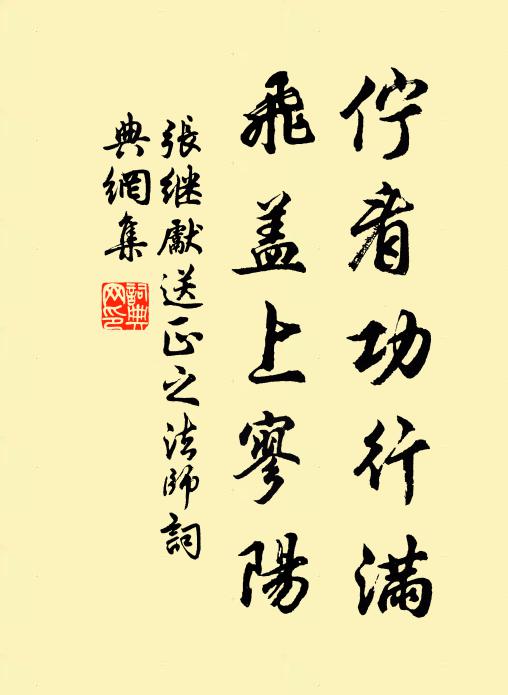 佇看功行滿
飛盖上寥陽
張继獻送正之法師詞
典網集
詞典
网印